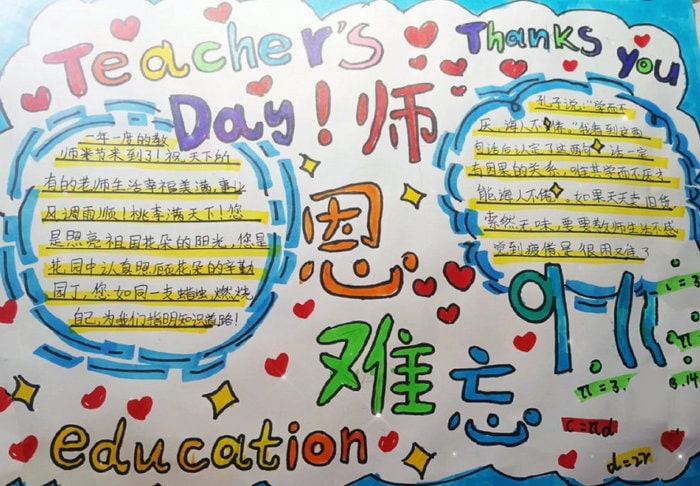 Teacher's
Day!
Thanks you
师
恩
难忘
一年一度的教
师节来到了!祝天下所
有的老师生活幸福美满,事业
风调雨顺!桃李满天下!您
是照亮祖国花朵的阳光,您是
花园中认真照顾花朵的辛勤
园丁,您如同一支蜡烛,燃烧
自己,为我们指明知识道路!
孔子说:"学而不
厌,诲人不倦。"我看到这两
句话后认定了这两句话一定
有因果的关系,唯其学而不厌才
能诲人不倦 如果天天卖旧货
索然无味,要教师生活不感
觉到疲倦是很困难了
9.11
π=3.
3.14
c=πd
d=2r
education